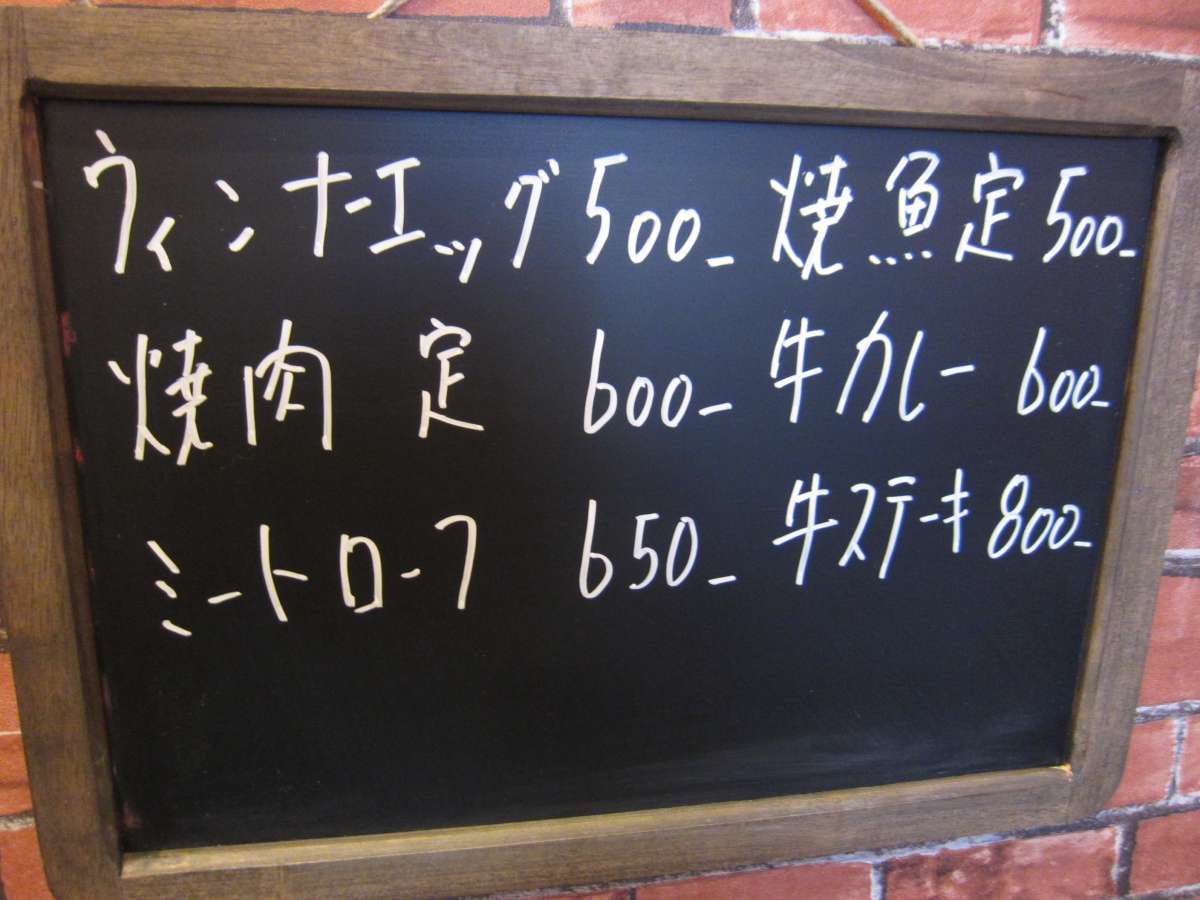 ウィンナーエッグ 500-
焼肉 定 600-
ミートローフ 650-
焼魚定 500-
牛カレー 600-
牛ステーキ 800-